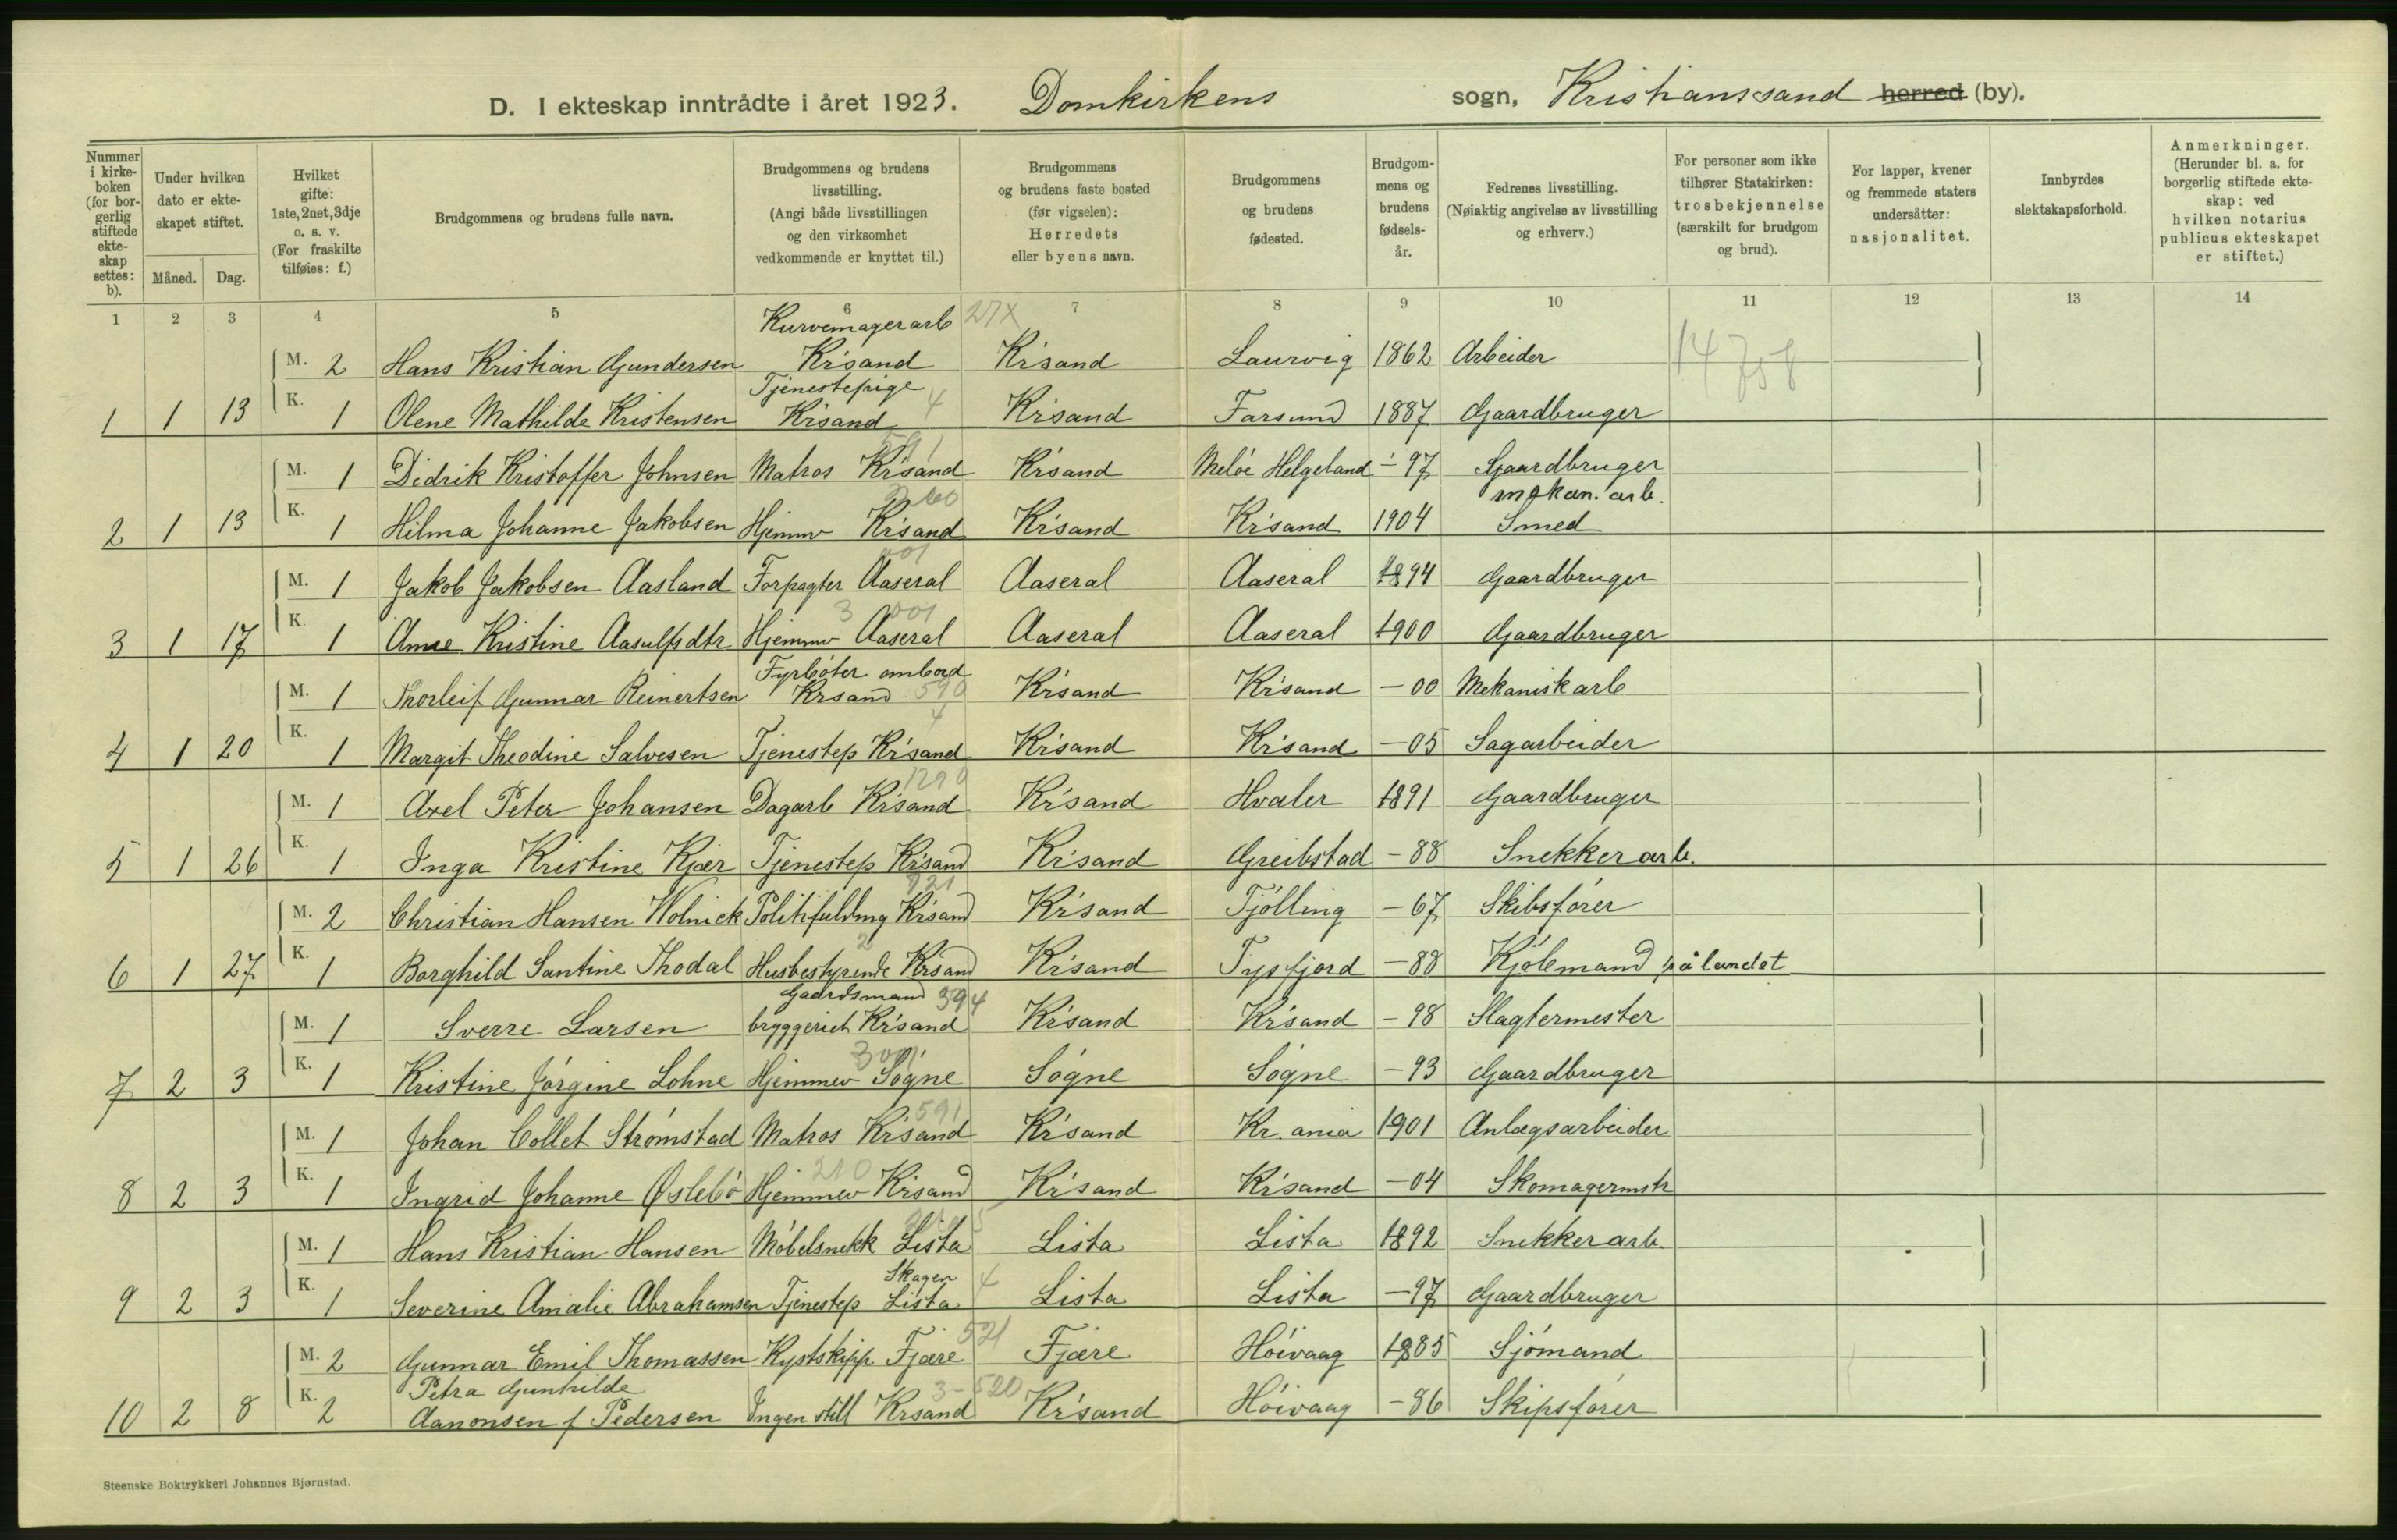 D. I ekteskap inntrådte i året 1923. Domkirkens sogn, Kristianssand herred (by).
Nummer i kirkeboken (for borgerlig stiftede ekteskap settes: b).
Under hvilken dato er ekteskapet stiftet.
Måned. Dag.
Hvilket gifte: 1ste, 2net, 3dje o. s. v. (For fraskilte tilføies: f.)
Brudgommens og brudens fulle navn.
Brudgommens og brudens livsstilling. (Angi både livsstillingen og den virksomhet vedkommende er knyttet til.)
Brudgommens og brudens faste bosted (før vigselen): Herredets eller byens navn.
Brudgommens og brudens fødested.
Brudgommens og brudens fødselsår.
Fedrenes livsstilling. (Nøiaktig angivelse av livsstilling og erhverv.)
For personer som ikke tilhører Statskirken: trosbekjennelse (særskilt for brudgom og brud).
For lapper, kvener og fremmede staters undersåtter: nasjonalitet.
Innbyrdes slektskapsforhold.
Anmerkninger. (Herunder bl. a. for borgerlig stiftede ekteskap: ved hvilken notarius publicus ekteskapet er stiftet.)
1 2 3 4 5 6 7 8 9 10 11 12 13 14
Kurvemagerarb 27X
M. 2 Hans Kristian Gundersen Kr'sand Kr'sand Laurvig 1862 Arbeider
Tjenestepige
1 1 13 K. 1 Olene Mathilde Kristensen Kr'sand 4 Kr'sand Farsund 1887 Gaardbruger
591
M. 1 Didrik Kristoffer Johnsen Matros Kr'sand Kr'sand Melöe Helgeland - 97 Gaardbruger
mekan. arb.
2 1 13 K. 1 Hilma Johanne Jakobsen Hjemmv Kr'sand Kr'sand Kr'sand 1904 Smed
M. 1 Jakob Jakobsen Aasland Forpagter Aaseral Aaseral Aaseral 1894 Gaardbruger
3 1 17 K. 1 Anne Kristine Aasulfsdtr Hjemmv Aaseral Aaseral Aaseral 1900 Gaardbruger
Fyrböter ombord
M. 1 Thorleif Gunnar Reinertsen Krsand 590 Kr'sand Kr'sand - 00 Mekanisk arb
4
4 1 20 K. 1 Margit Theodine Salvesen Tjenestep Kr'sand Kr'sand Kr'sand - 05 Sagarbeider
1290
M. 1 Axel Peter Johansen Dagarb Kr'sand Kr'sand Hvaler 1891 Gaardbruger
5 1 26 K. 1 Inga Kristine Kjær Tjenestep Kr'sand Kr'sand Greibstad - 88 Snekker arb.
M. 2 Christian Hansen Wolnick Politifuldmg Kr'sand Kr'sand Tjölling - 67 Skibsförer
2
6 1 27 K. 1 Borghild Santine Thodal Husbestyrende Krsand Kr'sand Tysfjord - 88 Kjölemand på landet
Gaardsmand 394
M. 1 Sverre Larsen bryggeriet Kr'sand Kr'sand Kr'sand - 98 Slagtermester
7 2 3 K. 1 Kristine Jörgine Lohne Hjemmev Sögne Sögne Sögne - 93 Gaardbruger
591
M. 1 Johan Collet Strömstad Matros Kr'sand Kr'sand Kr. ania 1901 Anlægsarbeider
210
8 2 3 K. 1 Ingrid Johanne Øslebö Hjemmev Kr'sand Kr'sand Kr'sand - 04 Skomagermstr
M. 1 Hans Kristian Hansen Möbelsnekk Lista Lista Lista 1892 Snekkerarb.
Skagen 4
9 2 3 K. 1 Severine Amalie Abrahamsen Tjenestep Lista Lista Lista - 97 Gaardbruger
521
M. 2 Gunnar Emil Thomassen Kystskipp Fjære Fjære Höivaag 1885 Sjömand
Petra Gunhilde 3-520
10 2 8 K. 2 Aanonsen f Pedersen Ingen still Krsand Kr'sand Höivaag - 86 Skipsförer
Steenske Boktrykkeri Johannes Bjørnstad.